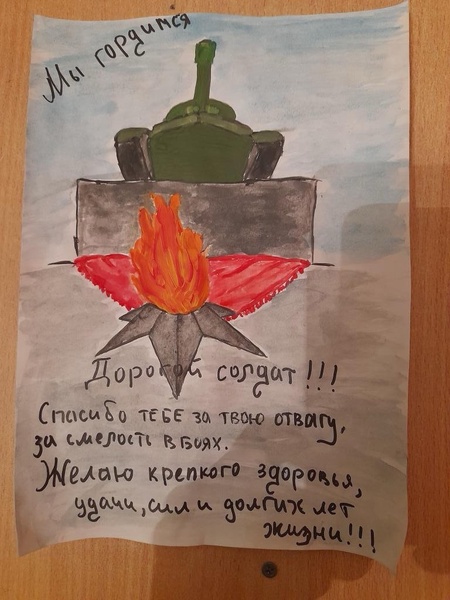 Мы гордимся
Дорогой солдат!!!
Спасибо тебе за твою отвагу,
за смелость в боях.
Желаю крепкого здоровья,
удачи, сил и долгих лет
жизни!!!